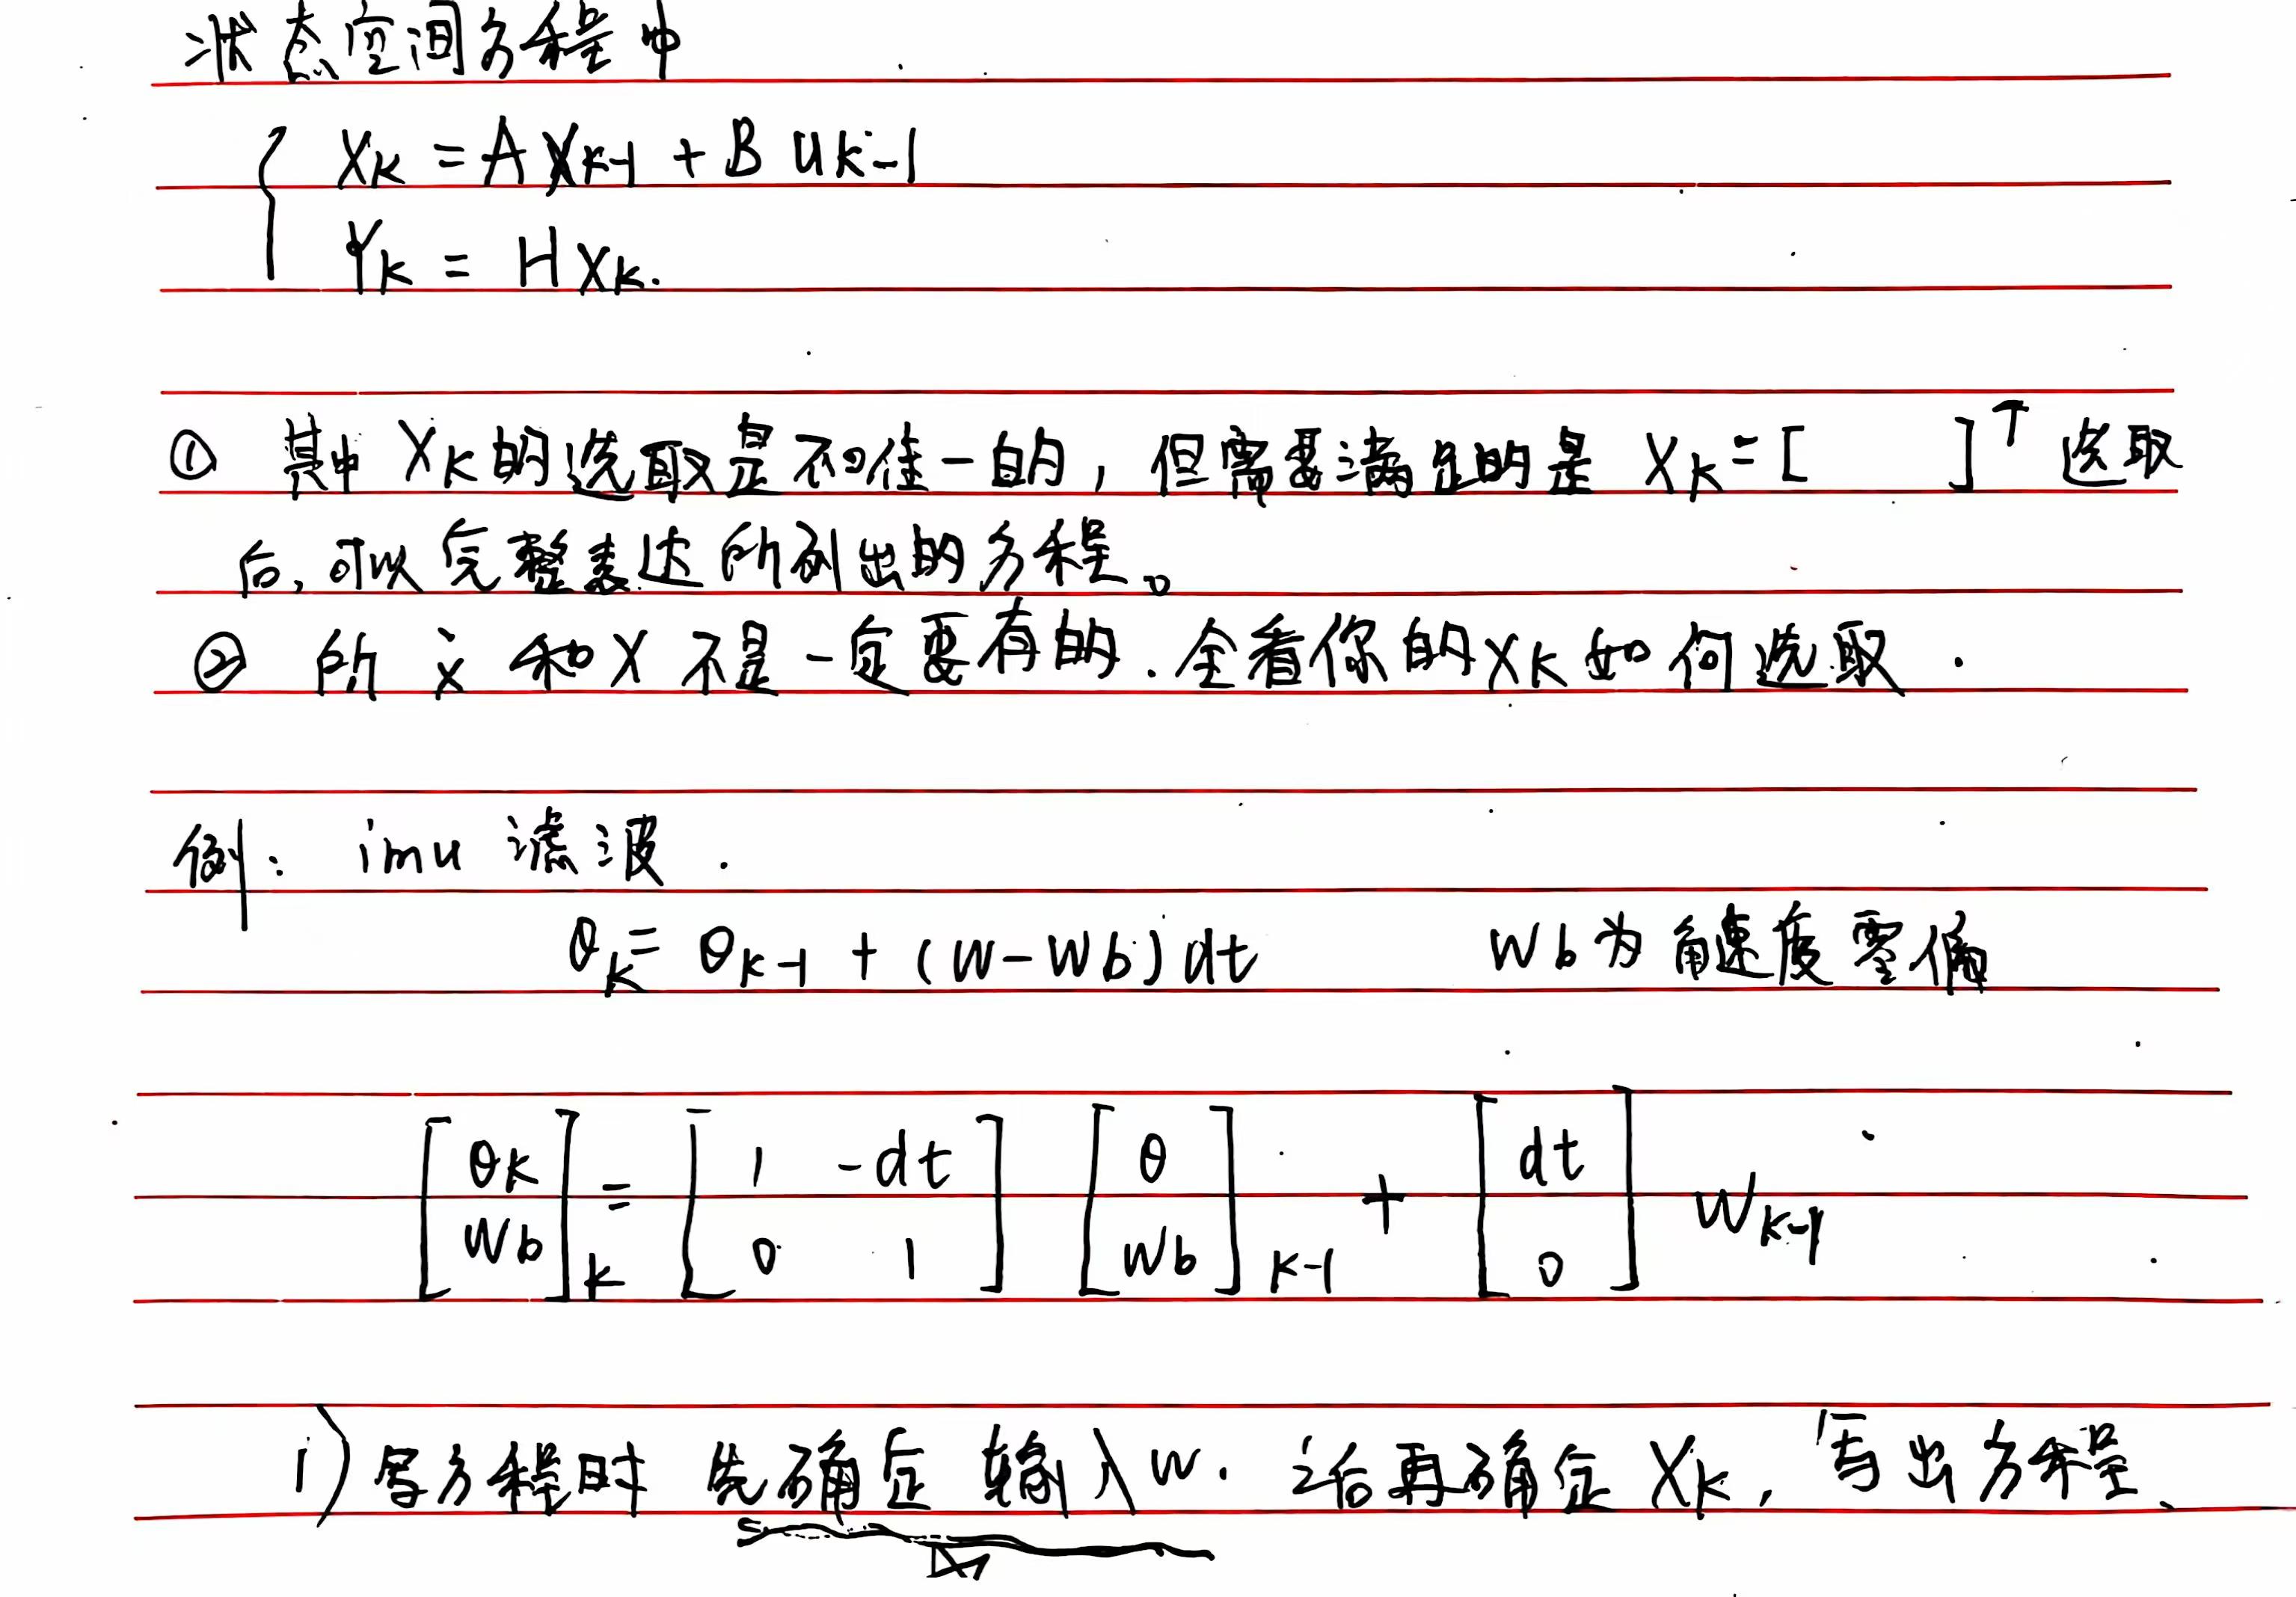 状态空间方程中
Xk = A Xk-1 + B uk-1
Yk = H Xk.
① 其中 Xk 的选取是不唯一的, 但需要满足的是 Xk = [ ]ᵀ 选取
后, 可以完整表达所列出的方程。
② 所 ẋ 和 X 不是一定要有的. 全看你的 Xk 如何选取.
例: imu 滤波.
θk = θk-1 + (W - Wb) dt Wb 为角速度零偏
[θk Wb]k = [1 -dt 0 1] [θ Wb]k-1 + [dt 0] Wk-1
1) 写方程时 先确定 输入 W. 之后再确定 Xk, 写出方程、